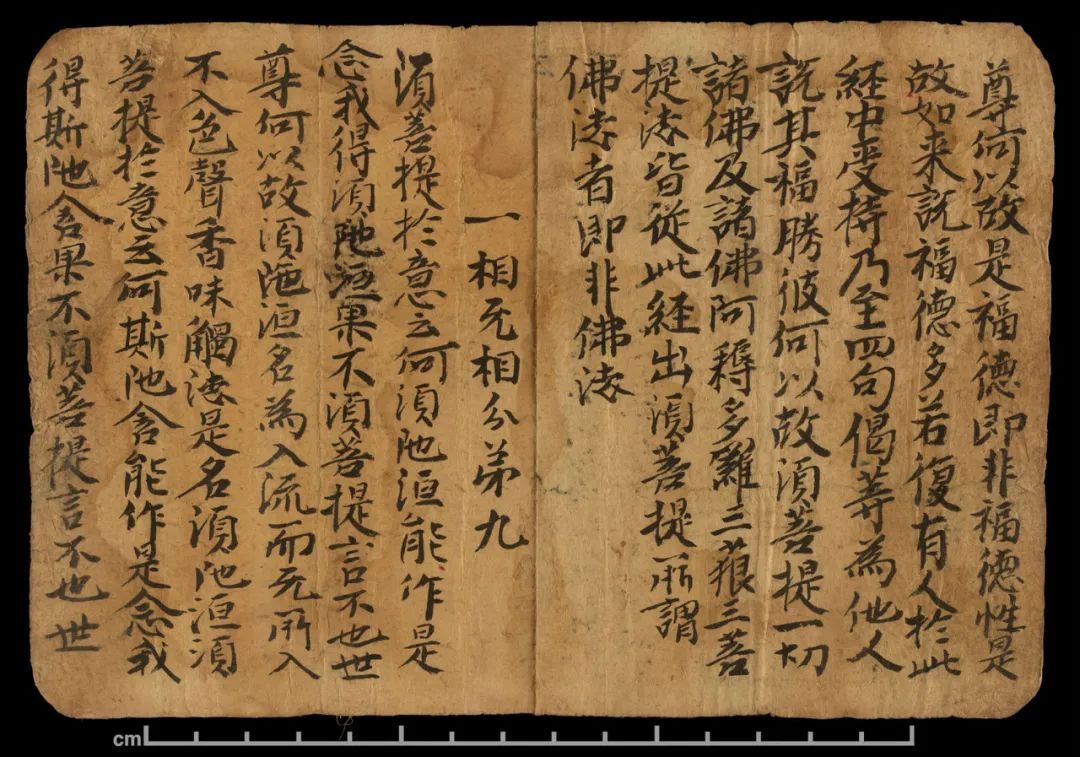 尊何以故是福德即非福德性是
故如来説福德多若復有人於此
経中受持乃至四句偈等為他人
説其福勝彼何以故須菩提一切
諸佛及諸佛阿耨多羅三藐三菩
提法皆從此経出須菩提所謂
佛法者即非佛法
一相无相分第九
須菩提於意云何須陁洹能作是
念我得須陁洹果不須菩提言不也世
尊何以故須陁洹名為入流而无所入
不入色聲香味觸法是名須陁洹須
菩提於意云何斯陁含能作是念我
得斯陁含果不須菩提言不也世
cm